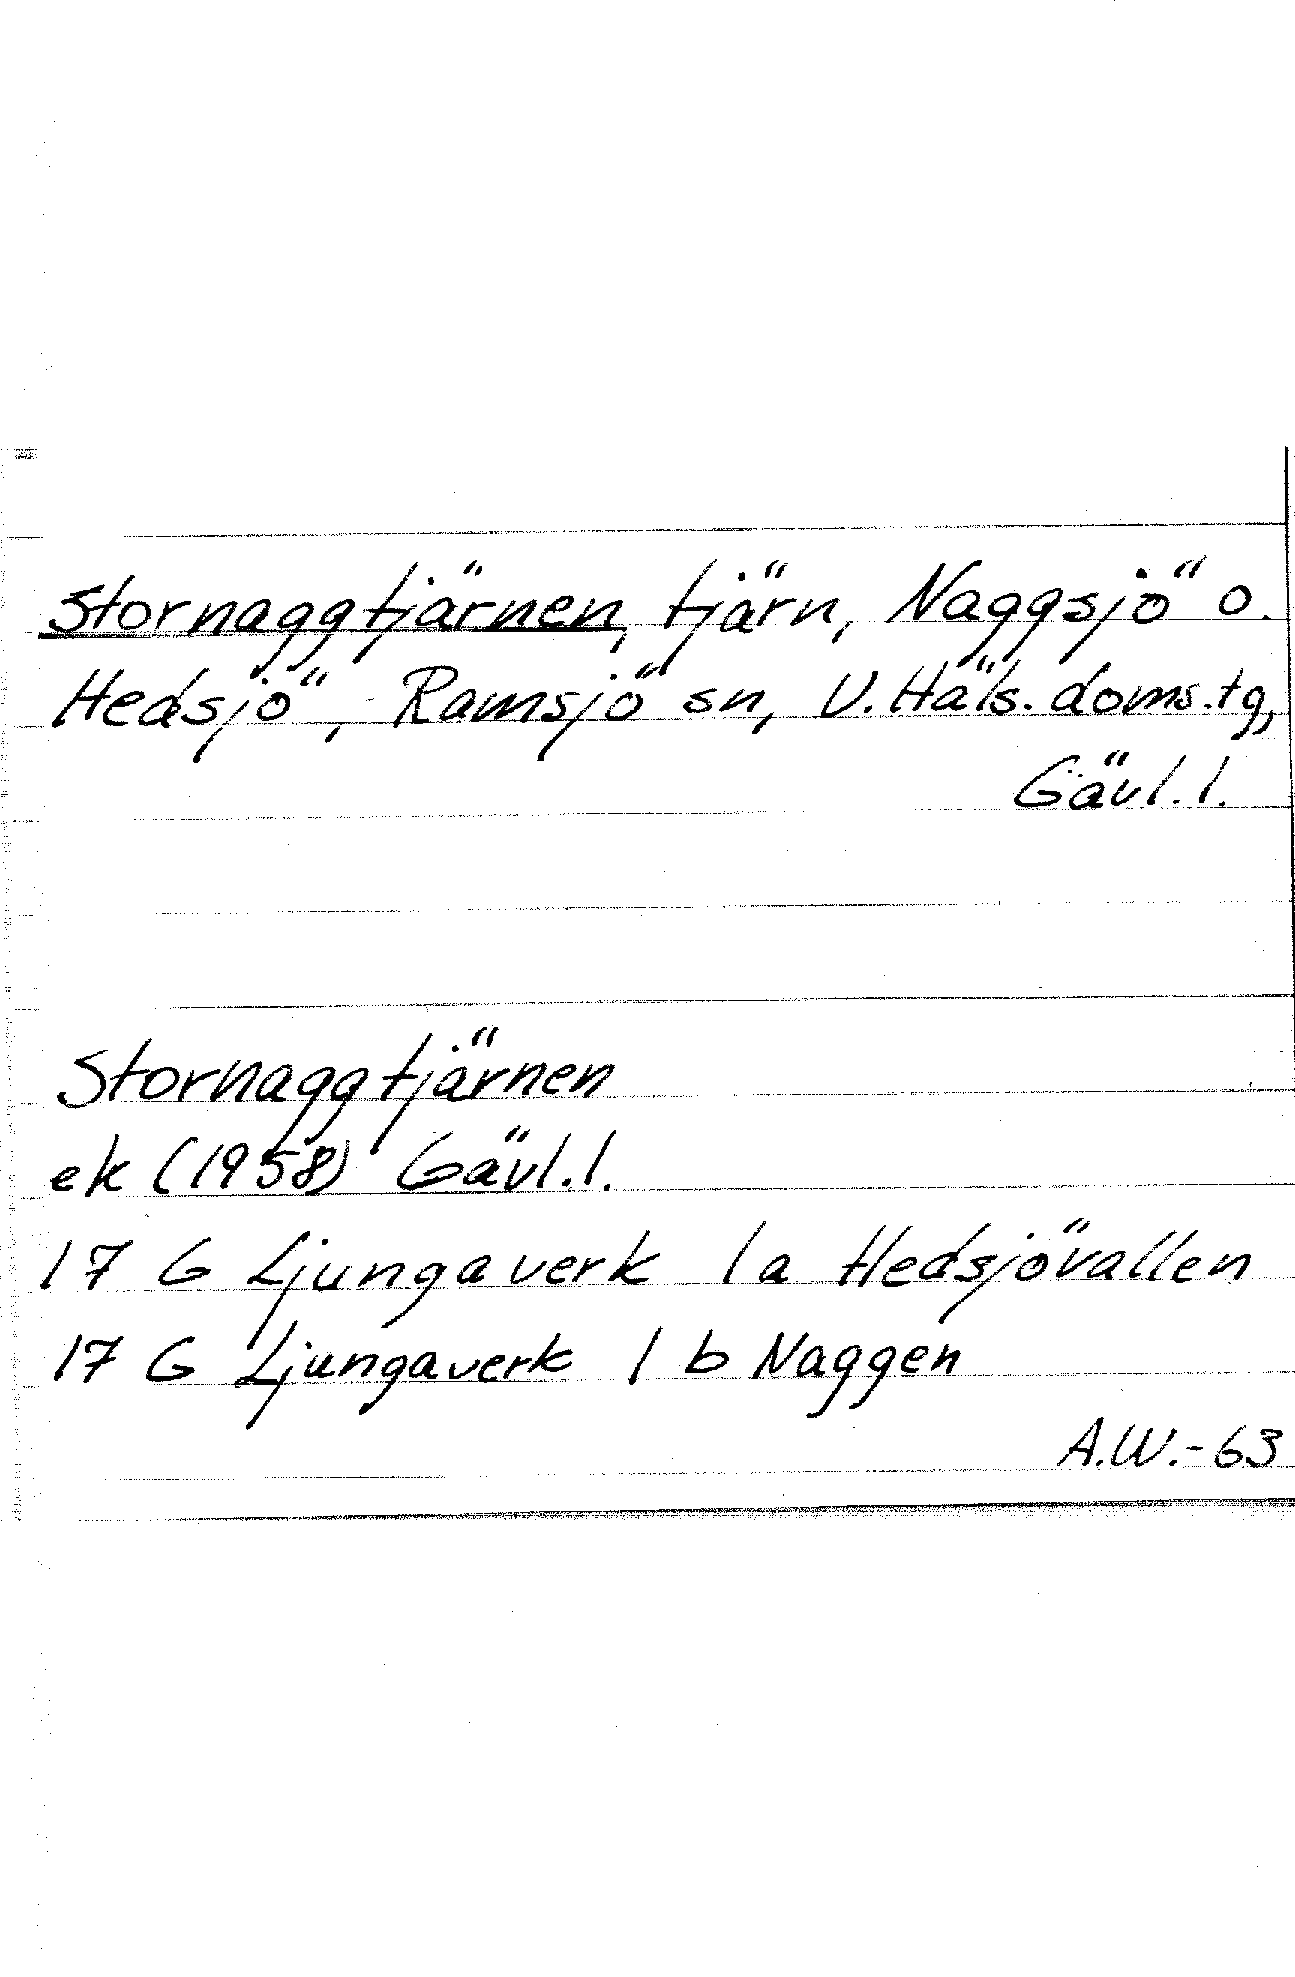 Stornaggtjärnen, tjärn, Naggsjö o.
Hedsjö, Ramsjö sn, V. Häls. doms. tg,
Gävl. l.
Stornaggtjärnen
ek (1958) Gävl. l.
17 G Ljungaverk 1 a Hedsjövallen
17 G Ljungaverk 1 b Naggen
A.W.-63